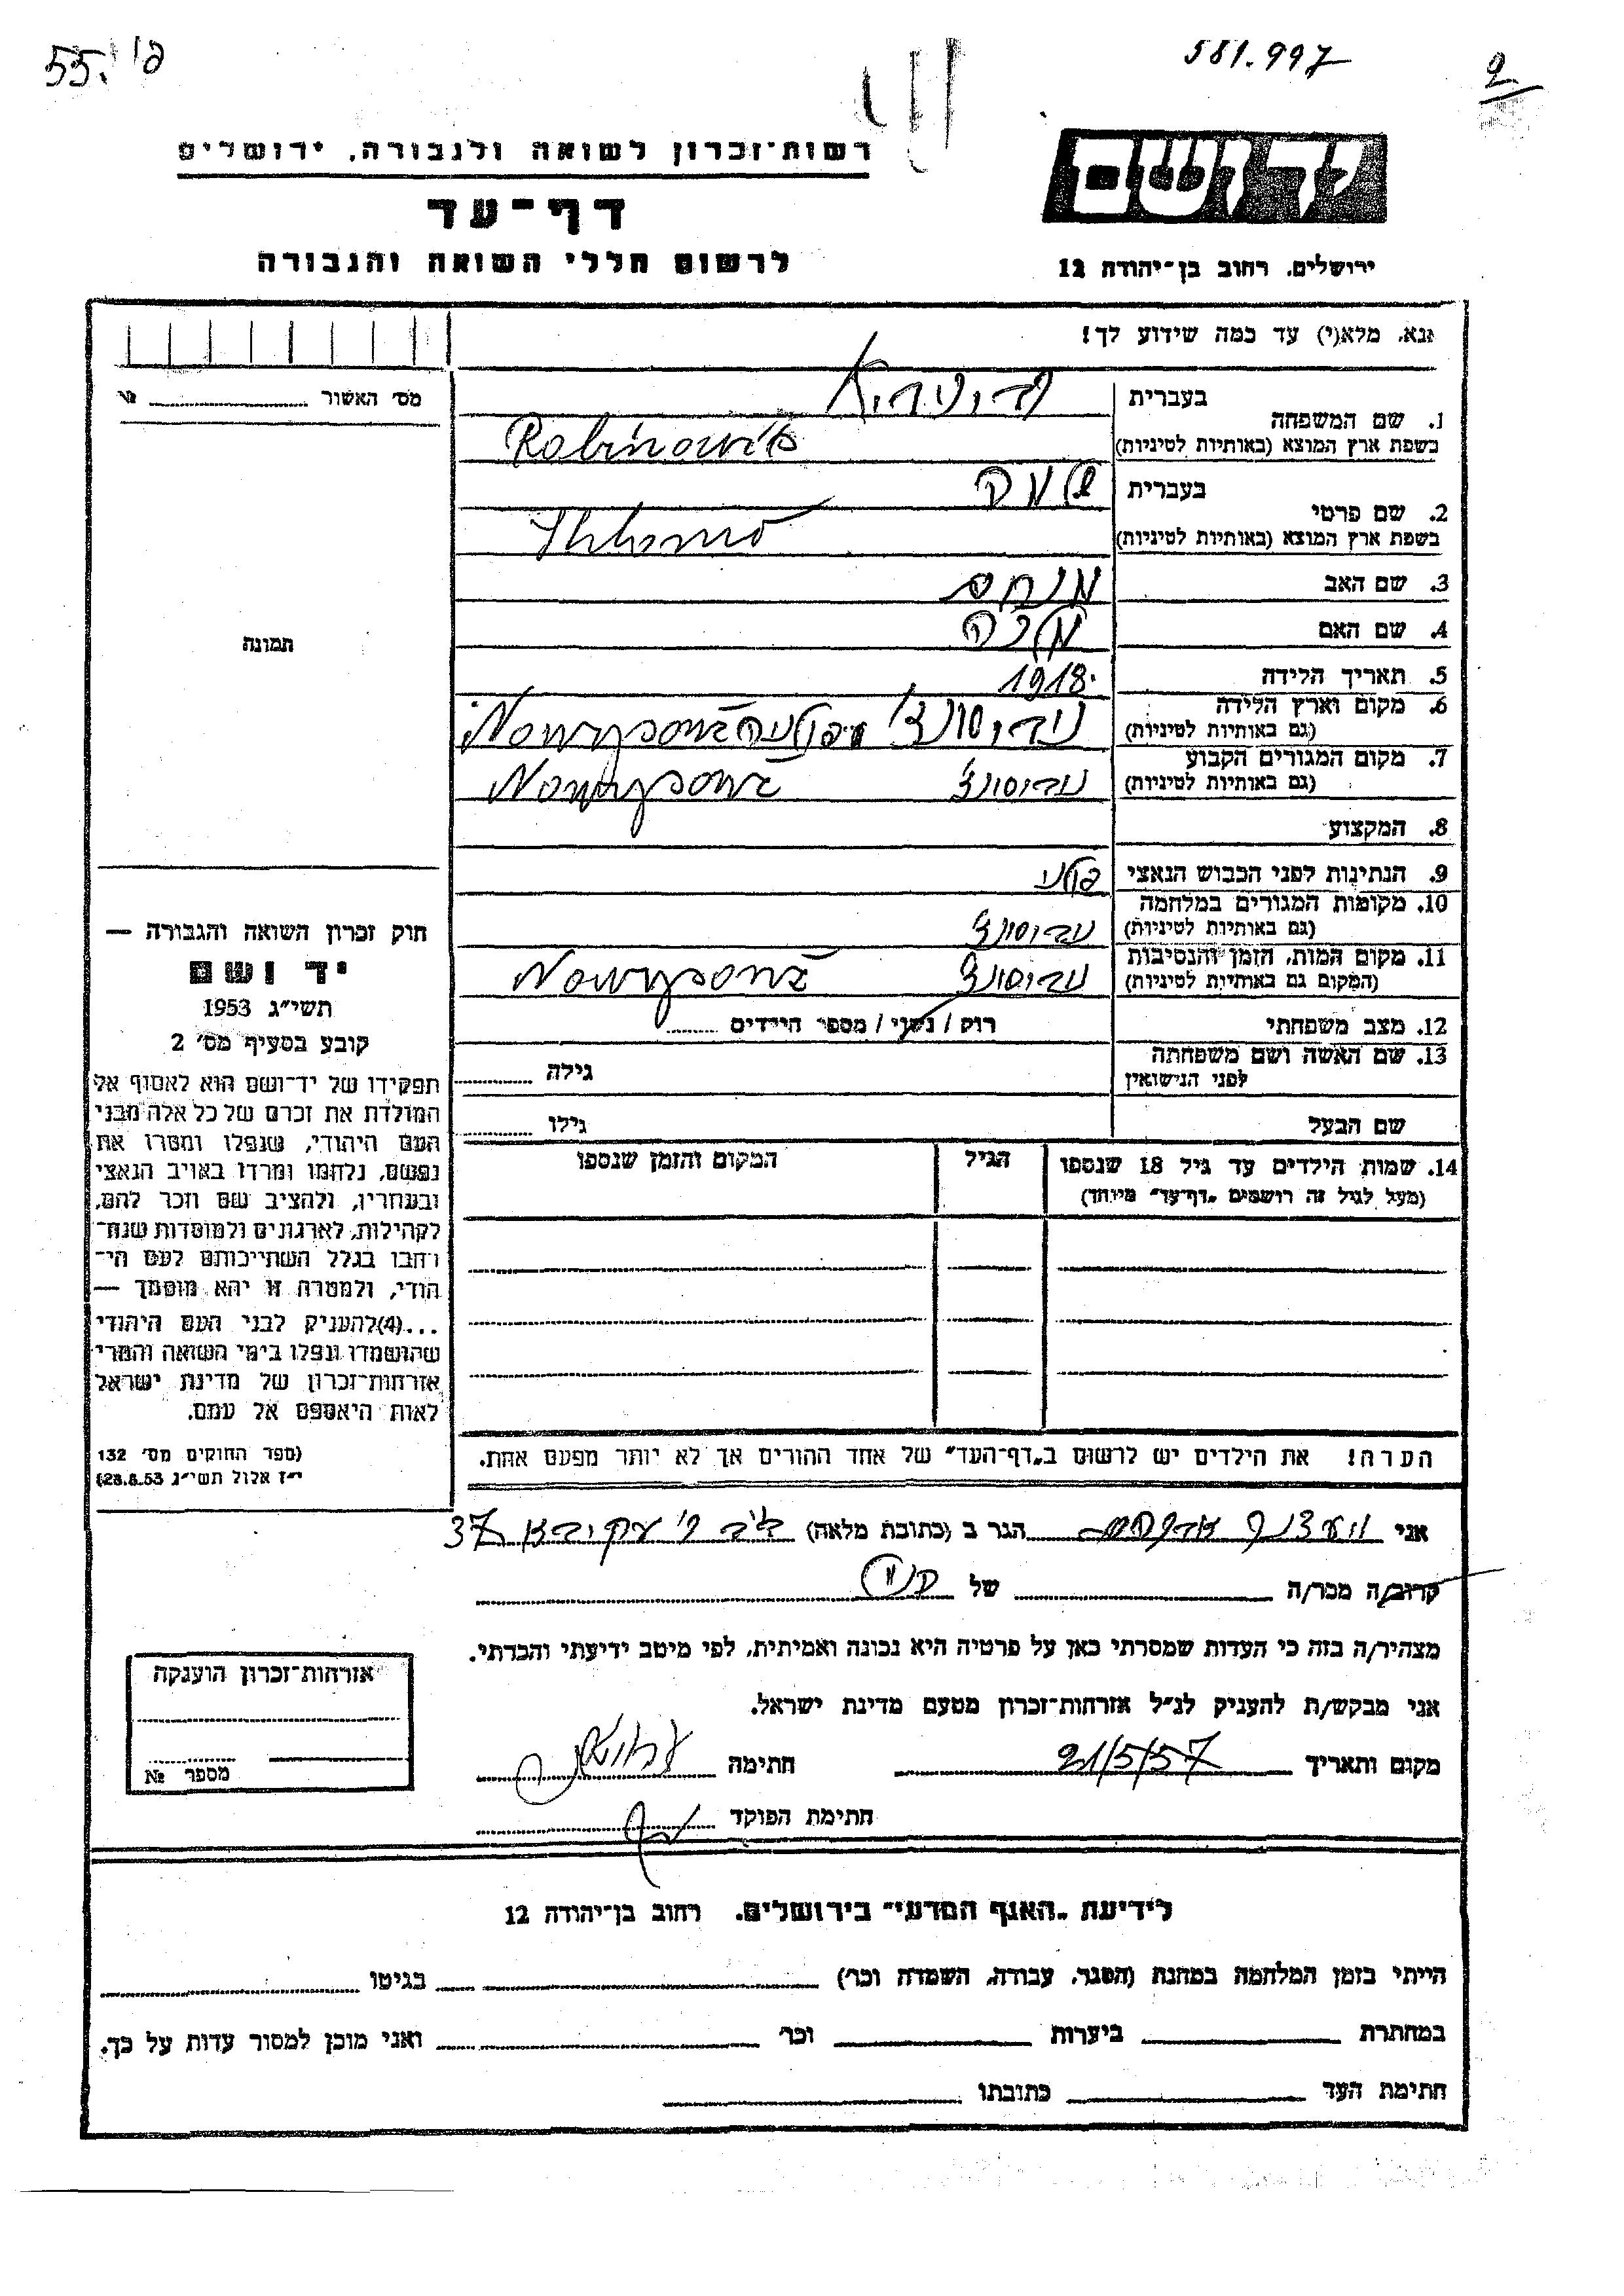 55. פ'
581.997
2
רשות־זכרון לשואה ולגבורה, ירושלים
דף־עד
לרשום חללי השואה והגבורה
יד ושם
ירושלים, רחוב בן־יהודה 12
אנא, מלא(י) עד כמה שידוע לך!
מס' האשור № 
בעברית
1. שם המשפחה
בשפת ארץ המוצא (באותיות לטיניות) Rabinowits
בעברית שלמה
2. שם פרטי
בשפת ארץ המוצא (באותיות לטיניות) Shlomo
3. שם האב מנחם
4. שם האם מלכה
5. תאריך הלידה 1918
6. מקום וארץ הלידה
(גם באותיות לטיניות) נובי סונץ' פולניה Nowysonz
7. מקום המגורים הקבוע
(גם באותיות לטיניות) נובי סונץ' Nowysonz
8. המקצוע
9. הנתינות לפני הכבוש הנאצי פולני
10. מקומות המגורים במלחמה
(גם באותיות לטיניות) נובי סונץ'
11. מקום המות, הזמן והנסיבות
(המקום גם באותיות לטיניות) נובי סונץ' Nowysonz
12. מצב משפחתי רוק / נשוי / מספר הילדים
13. שם האשה ושם משפחתה
לפני הנישואין גילה
שם הבעל גילו
14. שמות הילדים עד גיל 18 שנספו הגיל המקום והזמן שנספו
(מעל לגיל זה רושמים "דף־עד" מיוחד)
הערה! את הילדים יש לרשום ב"דף־העד" של אחד ההורים אך לא יותר מפעם אחת.
תמונה
חוק זכרון השואה והגבורה —
יד ושם
תשי"ג 1953
קובע בסעיף מס' 2
תפקידו של יד־ושם הוא לאסוף אל
המולדת את זכרם של כל אלה מבני
העם היהודי, שנפלו ומסרו את
נפשם, נלחמו ומרדו באויב הנאצי
ובעוזריו, ולהציב שם וזכר להם,
לקהילות, לארגונים ולמוסדות שנח־
רבו בגלל השתייכותם לעם הי־
הודי, ולמטרה זו יהא מוסמך —
...(4) להעניק לבני העם היהודי
שהושמדו ונפלו בימי השואה והמרי
אזרחות־זכרון של מדינת ישראל
לאות היאספם אל עמם.
(ספר החוקים מס' 132
י"ז אלול תשי"ג 28.8.53)
אני הגר ב (כתובת מלאה) ב"ב ר' עקיבא 37
קרוב/ה מכר/ה של הנ"ל
מצהיר/ה בזה כי העדות שמסרתי כאן על פרטיה היא נכונה ואמיתית, לפי מיטב ידיעתי והכרתי.
אני מבקש/ת להעניק לנ"ל אזרחות־זכרון מטעם מדינת ישראל.
מקום ותאריך 21/5/57 חתימה
חתימת הפוקד
אזרחות־זכרון הוענקה
מספר №
לידיעת "האגף המדעי" בירושלים, רחוב בן־יהודה 12
הייתי בזמן המלחמה במחנה (הסגר, עבודה, השמדה וכר') בגיטו
במחתרת ביערות וכר' ואני מוכן למסור עדות על כך.
חתימת העד כתובתו